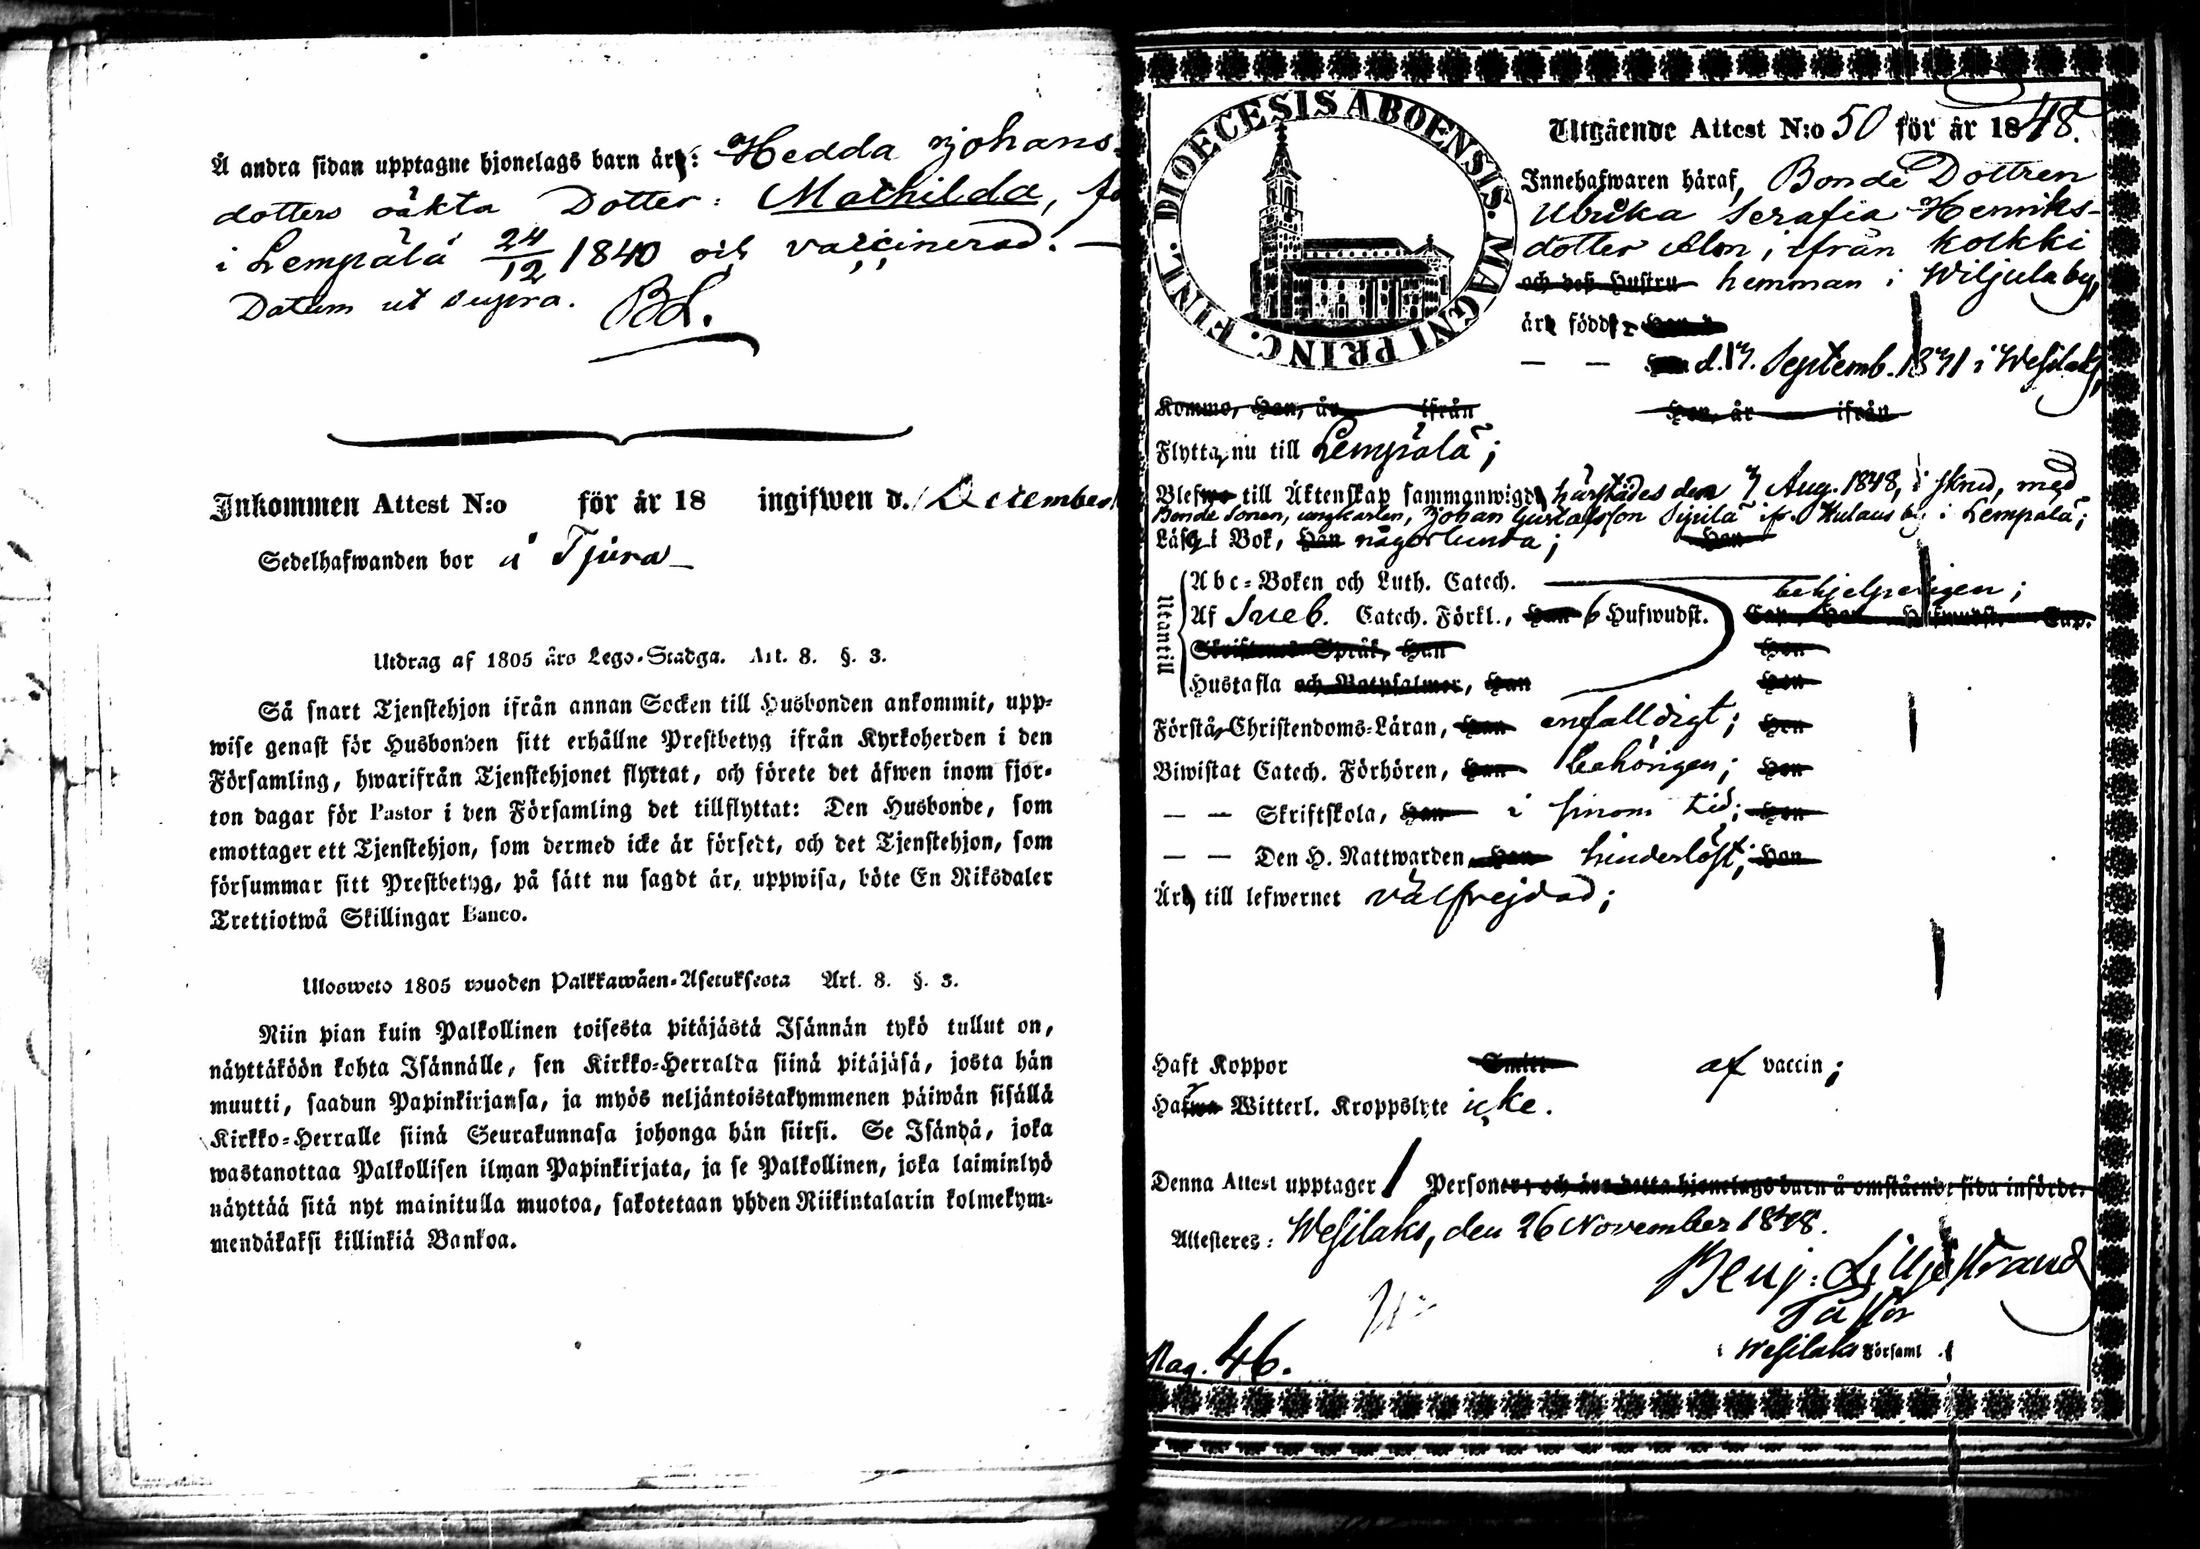 Å andra sidan upptagne hjonelags barn är: Hedda Johans-
dotters oäkta Dotter: Mathilda, fö
i Lempälä 24/12 1840 och vaccinerad. —
Datum ut supra. BL.
Inkommen Attest N:o för år 18 ingifwen d. December
Sedelhafwanden bor å Tjura
Utdrag af 1805 års Lego-Stadga. Art. 8. §. 3.
Så snart Tjenstehjon ifrån annan Socken till Husbonden ankommit, upp-
wise genast för Husbonden sitt erhållne Prestbetyg ifrån Kyrkoherden i den
Församling, hwarifrån Tjenstehjonet flyttat, och förete det äfwen inom fjor-
ton dagar för Pastor i den Församling det tillflyttat: Den Husbonde, som
emottager ett Tjenstehjon, som dermed icke är försedt, och det Tjenstehjon, som
försummar sitt Prestbetyg, på sätt nu sagdt är, uppwisa, böte En Riksdaler
Trettiotwå Skillingar Banco.
Ulosweto 1805 wuoden Palkkawäen-Asetuksesta Art. 8. §. 3.
Niin pian kuin Palkollinen toisesta pitäjästä Isännän tykö tullut on,
näyttäköön kohta Isännälle, sen Kirkko-Herralda siinä pitäjäsä, josta hän
muutti, saadun Papinkirjansa, ja myös neljäntoistakymmenen päiwän sisällä
Kirkko-Herralle siinä Seurakunnasa johonga hän siirsi. Se Isändä, joka
wastanottaa Palkollisen ilman Papinkirjata, ja se Palkollinen, joka laiminlyö
näyttää sitä nyt mainitulla muotoa, sakotetaan yhden Riikintalarin kolmekym-
mendäkaksi killinkiä Bankoa.
FINL. DIOECESIS ABOENSIS. MAGNI PRINC.
Utgående Attest N:o 50 för år 1848.
Innehafwaren häraf, Bonde Dottren
Ulrika Serafia Henriks-
dotter Alm, ifrån Kolkki
och dess Hustru hemman i Wiljula by,
är född:
— — d. 17. Septemb. 1831 i Wesilaks,
Komme, Han, år ifrån Hon, år ifrån
Flytta, nu till Lempälä;
Blefwo till Äktenskap sammanwigd härstädes den 7 Aug. 1848, i skrud, med
Bonde Sonen, ungkarlen, Johan Gustafsson Sipilä ifr. Kulans by i Lempälä;
Läser i Bok, Han någorlunda; Hon
Utantill
Abc-Boken och Luth. Catech. behjelpeligen;
Af Sveb. Catech. Förkl., Han 6 Hufwudst. Cap. Hon Hufwudst. Cap.
Skriftenes Språk, Han Hon
Hustafla och Botpsalmer, Han Hon
Förstår Christendoms-Läran, Han enfalldigt; Hon
Biwistat Catech. Förhören, Han behörigen; Hon
— — Skriftskola, Han i sinom tid; Hon
— — Den H. Nattwarden, Han hinderlöst; Hon
Är till lefwernet välfrejdad;
Haft Koppor Smitt af vaccin;
Har Witterl. Kroppslyte icke.
Denna Attest upptager 1 Personer; och äro detta hjonelags barn å omstående sida införde.
Attesteres: Wesilaks, den 26 November 1848.
Benj: Lilljestrand
i Wesilaks Församl.
Pag. 46.